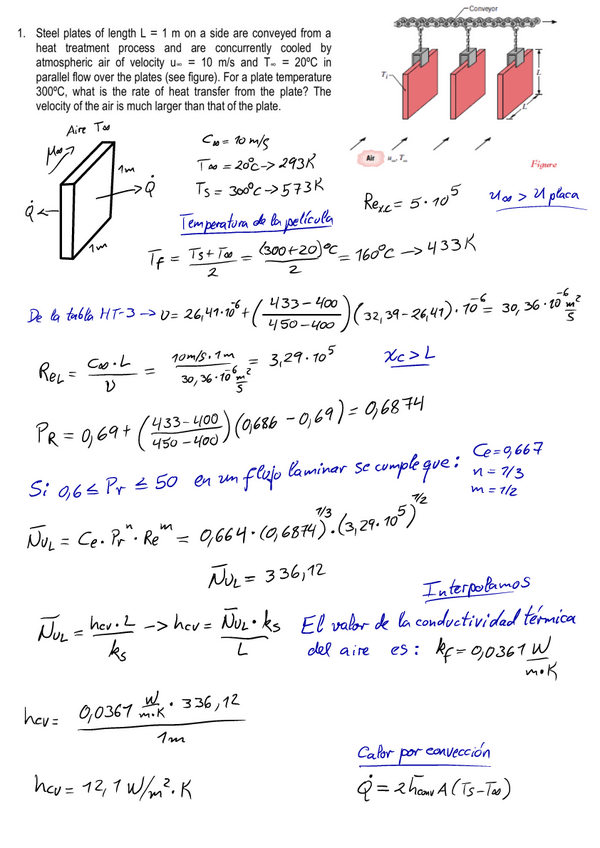 Conveyor
1. Steel plates of length L = 1 m on a side are conveyed from a
heat treatment process and are concurrently cooled by
atmospheric air of velocity u∞ = 10 m/s and T∞ = 20ºC in
parallel flow over the plates (see figure). For a plate temperature
300ºC, what is the rate of heat transfer from the plate? The
velocity of the air is much larger than that of the plate.
Ti
L
L
Air u∞, T∞
Figure
Aire T∞
μ∞
1m
Q̇
Q̇
1m
C∞ = 10 m/s
T∞ = 20ºC -> 293K
Ts = 300ºC -> 573K
Rexc = 5·10^5
u∞ > u placa
Temperatura de la película
Tf = (Ts + T∞)/2 = (300+20)ºC/2 = 160ºC -> 433K
De la tabla HT-3 -> υ = 26,41·10^-6 + ((433-400)/(450-400))(32,39-26,41)·10^-6 = 30,36·10^-6 m²/s
ReL = C∞·L/υ = 10m/s·1m/(30,36·10^-6 m²/s) = 3,29·10^5
xc > L
PR = 0,69 + ((433-400)/(450-400))(0,686-0,69) = 0,6874
Si 0,6 ≤ Pr ≤ 50 en un flujo laminar se cumple que:
Ce = 0,667
n = 1/3
m = 1/2
N̄uL = Ce·Pr^n·Re^m = 0,664·(0,6874)^1/3·(3,29·10^5)^1/2
N̄uL = 336,12
Interpolamos
N̄uL = hcv·L/ks -> hcv = N̄uL·ks/L
El valor de la conductividad térmica
del aire es: kf = 0,0361 W/m·K
hcv = 0,0361 W/m·K · 336,12/1m
Calor por convección
hcv = 12,1 W/m²·K
Q̇ = 2 h̄conv A (Ts-T∞)